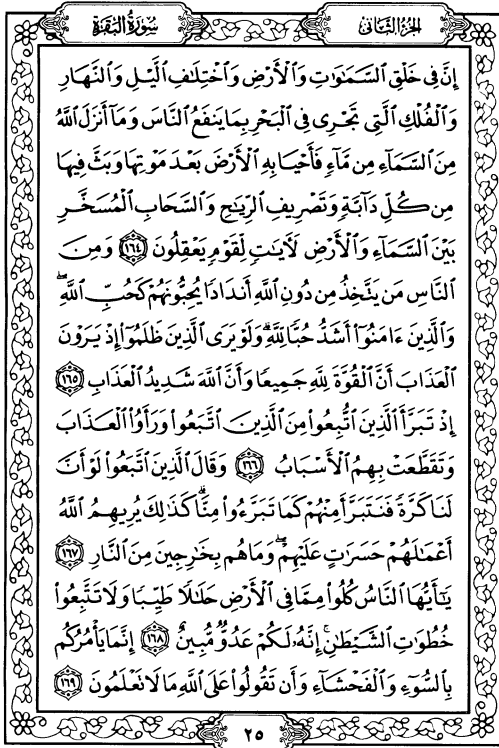 سُورَةُ البَقَرَةِ
الجزء الثاني
إِنَّ فِى خَلْقِ ٱلسَّمَـٰوَٰتِ وَٱلْأَرْضِ وَٱخْتِلَـٰفِ ٱلَّيْلِ وَٱلنَّهَارِ
وَٱلْفُلْكِ ٱلَّتِى تَجْرِى فِى ٱلْبَحْرِ بِمَا يَنفَعُ ٱلنَّاسَ وَمَآ أَنزَلَ ٱللَّهُ
مِنَ ٱلسَّمَآءِ مِن مَّآءٍ فَأَحْيَا بِهِ ٱلْأَرْضَ بَعْدَ مَوْتِهَا وَبَثَّ فِيهَا
مِن كُلِّ دَآبَّةٍ وَتَصْرِيفِ ٱلرِّيَـٰحِ وَٱلسَّحَابِ ٱلْمُسَخَّرِ
بَيْنَ ٱلسَّمَآءِ وَٱلْأَرْضِ لَـَٔايَـٰتٍ لِّقَوْمٍ يَعْقِلُونَ ١٦٤ وَمِنَ
ٱلنَّاسِ مَن يَتَّخِذُ مِن دُونِ ٱللَّهِ أَندَادًا يُحِبُّونَهُمْ كَحُبِّ ٱللَّهِ ۖ
وَٱلَّذِينَ ءَامَنُوٓا۟ أَشَدُّ حُبًّا لِّلَّهِ ۗ وَلَوْ يَرَى ٱلَّذِينَ ظَلَمُوٓا۟ إِذْ يَرَوْنَ
ٱلْعَذَابَ أَنَّ ٱلْقُوَّةَ لِلَّهِ جَمِيعًا وَأَنَّ ٱللَّهَ شَدِيدُ ٱلْعَذَابِ ١٦٥
إِذْ تَبَرَّأَ ٱلَّذِينَ ٱتُّبِعُوا۟ مِنَ ٱلَّذِينَ ٱتَّبَعُوا۟ وَرَأَوُا۟ ٱلْعَذَابَ
وَتَقَطَّعَتْ بِهِمُ ٱلْأَسْبَابُ ١٦٦ وَقَالَ ٱلَّذِينَ ٱتَّبَعُوا۟ لَوْ أَنَّ
لَنَا كَرَّةً فَنَتَبَرَّأَ مِنْهُمْ كَمَا تَبَرَّءُوا۟ مِنَّا ۗ كَذَٰلِكَ يُرِيهِمُ ٱللَّهُ
أَعْمَـٰلَهُمْ حَسَرَٰتٍ عَلَيْهِمْ ۖ وَمَا هُم بِخَـٰرِجِينَ مِنَ ٱلنَّارِ ١٦٧
يَـٰٓأَيُّهَا ٱلنَّاسُ كُلُوا۟ مِمَّا فِى ٱلْأَرْضِ حَلَـٰلًا طَيِّبًا وَلَا تَتَّبِعُوا۟
خُطُوَٰتِ ٱلشَّيْطَـٰنِ ۚ إِنَّهُۥ لَكُمْ عَدُوٌّ مُّبِينٌ ١٦٨ إِنَّمَا يَأْمُرُكُم
بِٱلسُّوٓءِ وَٱلْفَحْشَآءِ وَأَن تَقُولُوا۟ عَلَى ٱللَّهِ مَا لَا تَعْلَمُونَ ١٦٩
٢٥